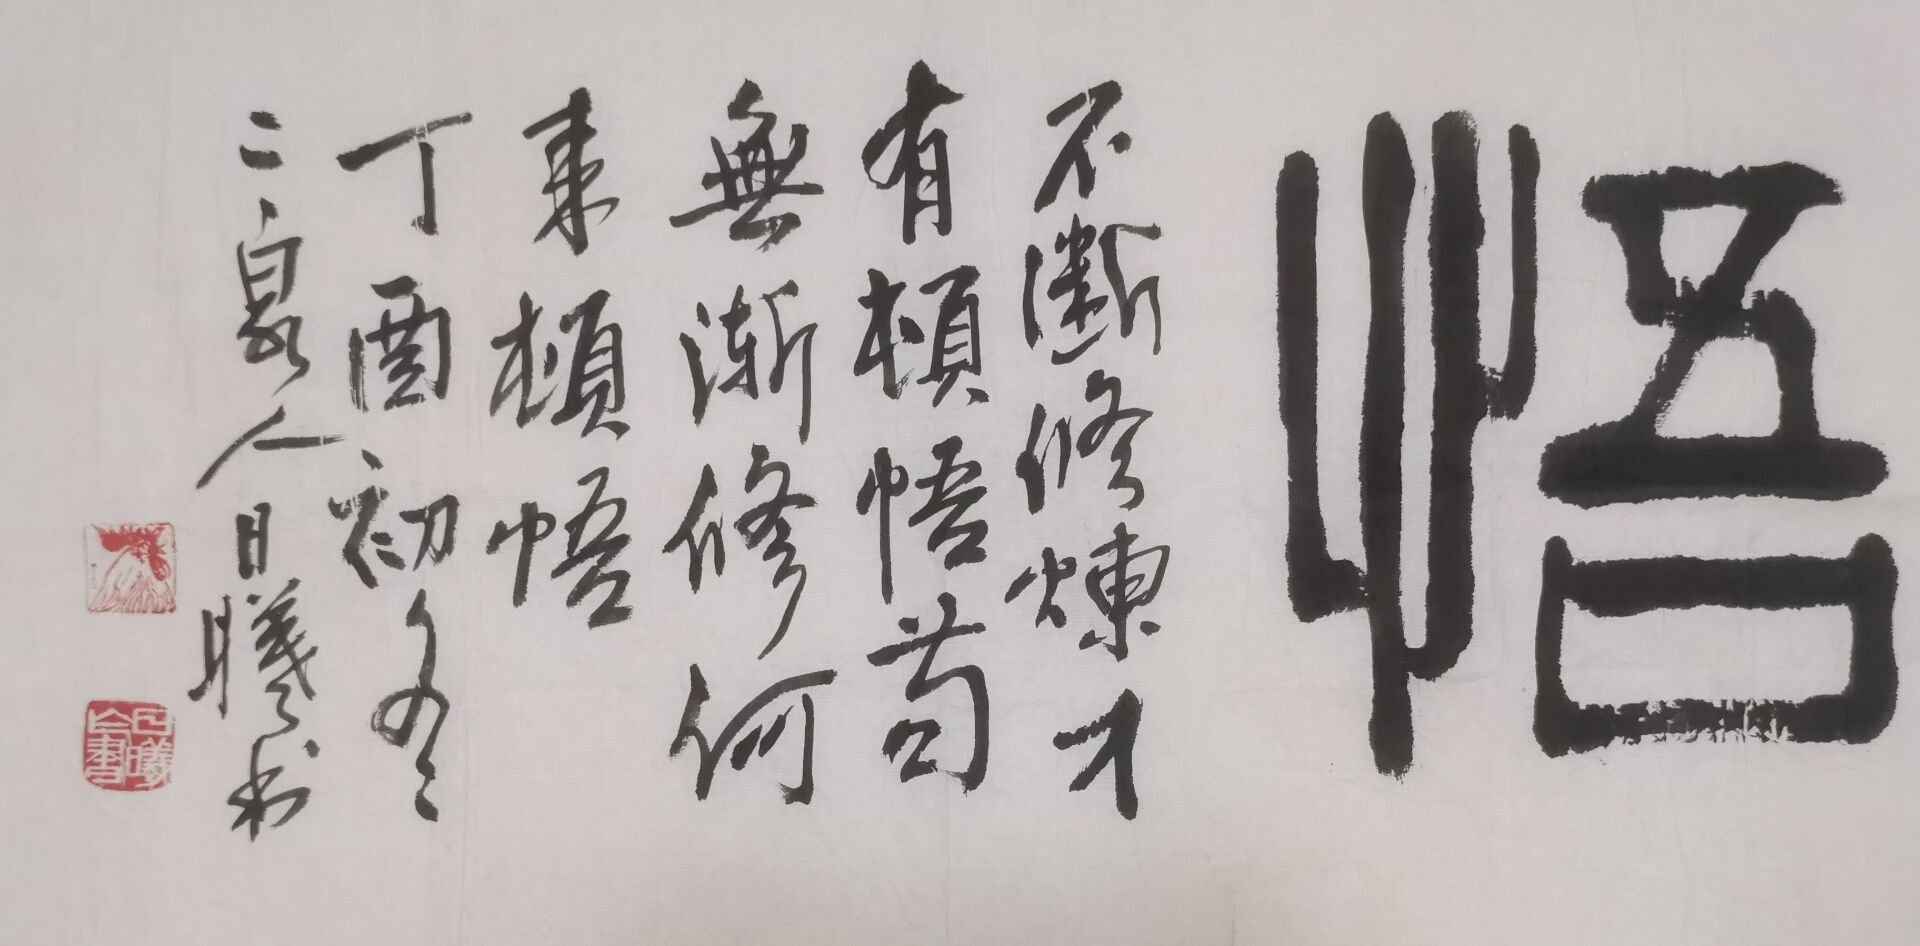 悟
不斷修煉才
有頓悟苟
無漸修何
來頓悟
丁酉初冬
二泉人日曦书
日曦